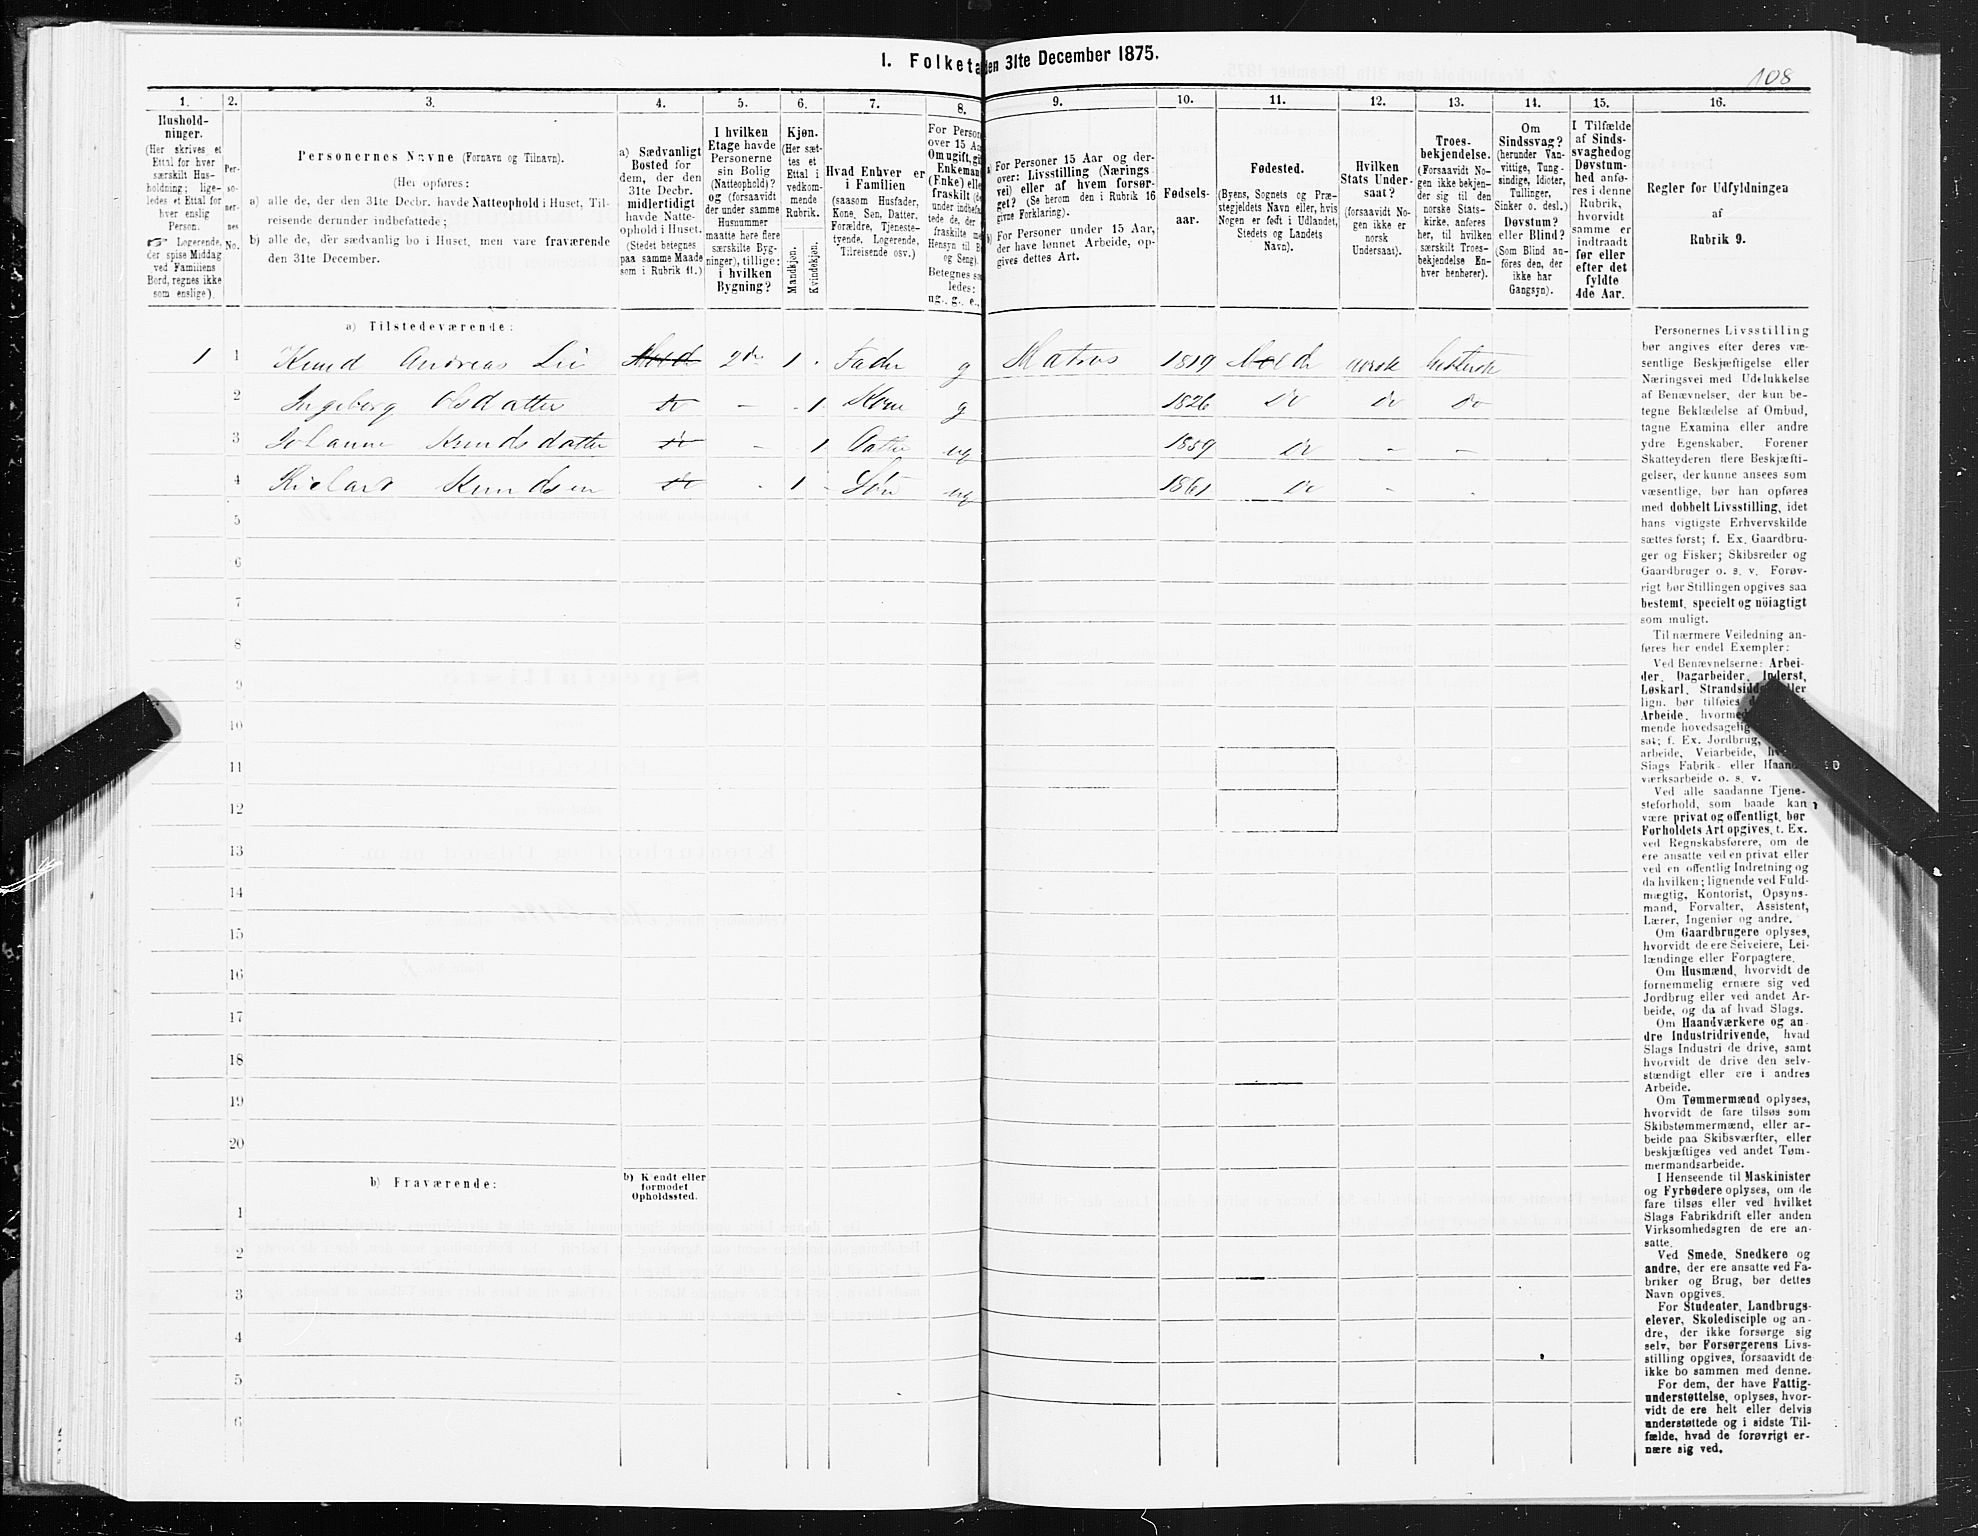 1. Folketa den 31te December 1875.
108
1. 2. 3. 4. 5. 6. 7. 8. 9. 10. 11. 12. 13. 14. 15. 16.
Hushold-
ninger.
(Her skrives et
Ettal for hver
særskilt Hus-
holdning; lige-
ledes et Ettal for
hver enslig
Person.
☞ Logerende,
der spise Middag
ved Familiens
Bord, regnes ikke
som enslige).
Per-
so-
ner-
nes
No.
Personernes Navne (Fornavn og Tilnavn).
(Her opføres:
a) alle de, der den 31te Decbr. havde Natteophold i Huset, Til-
reisende derunder indbefattede;
b) alle de, der sædvanlig bo i Huset, men vare fraværende
den 31te December.
a) Sædvanligt
Bosted for
dem, der den
31te Decbr.
midlertidigt
havde Natte-
ophold i Huset.
(Stedet betegnes
paa samme Maade
som i Rubrik 11.)
I hvilken
Etage havde
Personerne
sin Bolig
(Natteophold)?
og (forsaavidt
der under samme
Husnummer
maatte høre flere
særskilte Byg-
ninger), tillige:
i hvilken
Bygning?
Kjøn.
(Her sæt-
tes et
Ettal i
vedkom-
mende
Rubrik.
Mandkjøn.
Kvindekjøn.
Hvad Enhver er
i Familien
(saasom Husfader,
Kone, Søn, Datter,
Forældre, Tjeneste-
tyende, Logerende,
Tilreisende osv.)
For Person
over 15 Aa
Om ugift, gi
Enkeman
(Enke) elle
fraskilt (
under indbefa
tede de, der
fraskilte me
Hensyn til B
og Seng).
Betegnes sa
ledes:
ug., g., e.,
a) For Personer 15 Aar og der-
over: Livsstilling (Nærings
vei) eller af hvem forsør-
get? (Se herom den i Rubrik 16
givne Forklaring).
b) For Personer under 15 Aar,
der have lønnet Arbeide, op-
gives dettes Art.
Fødsels-
aar.
Fødested.
(Byens, Sognets og Præ-
stegjeldets Navn eller, hvis
Nogen er født i Udlandet,
Stedets og Landets
Navn).
Hvilken
Stats Under-
saat?
(forsaavidt No-
gen ikke er
norsk
Undersaat).
Troes-
bekjendelse.
(Forsaavidt No-
gen ikke bekjen-
der sig til den
norske Stats-
kirke, anføres
her, til hvilken
særskilt Troes-
bekjendelse En-
hver henhører).
Om
Sindssvag?
(herunder Van-
vittige, Tung-
sindige, Idioter,
Tullinger,
Sinker o. desl.)
Døvstum?
eller Blind?
(Som Blind an-
føres den, der
ikke har
Gangsyn).
I Tilfælde
af Sinds-
svaghed og
Døvstum-
hed anfø-
res i denne
Rubrik,
hvorvidt
samme er
indtraadt
før eller
efter det
fyldte
4de Aar.
Regler for Udfyldningen
af
Rubrik 9.
a) Tilstedeværende:
1 1 Knud Andreas Lie Molde 2 1 Fader g Matros 1819 Molde norsk luthersk
2 Ingeborg Olsdatter do - 1 Kone g 1826 do do do
3 Johanne Knudsdatter do - 1 Datter ug 1859 do - -
4 Richart Knudsen do - 1 Søn ug 1861 do - -
5
6
7
8
9
10
11
12
13
14
15
16
17
18
19
20
b) Fraværende:
b) Kjendt eller
formodet
Opholdssted.
1
2
3
4
5
6
Personernes Livsstilling
bør angives efter deres væ-
sentlige Beskjæftigelse eller
Næringsvei med Udelukkelse
af Benævnelser, der kun be-
tegne Beklædelse af Ombud,
tagne Examina eller andre
ydre Egenskaber. Forener
Skatteyderen flere Beskjæfti-
gelser, der kunne ansees som
væsentlige, bør han opføres
med dobbelt Livsstilling, idet
hans vigtigste Erhvervskilde
sættes først; f. Ex. Gaardbru-
ger og Fisker; Skibsreder og
Gaardbruger o. s. v. Forøv-
rigt bør Stillingen opgives saa
bestemt, specielt og nöiagtigt
som muligt.
Til nærmere Veiledning an-
føres her endel Exempler:
Ved Benævnelserne: Arbei-
der, Dagarbeider, Inderst,
Løskarl, Strandsidder eller
lign. bør tilføies
Arbeide, hvormed
mende hovedsagelig
sat; f. Ex. Jordbrug,
arbeide, Veiarbeide,
Slags Fabrik- eller Haand-
værksarbeide o. s. v.
Ved alle saadanne Tjene-
steforhold, som baade kan
være privat og offentligt, bør
Forholdets Art opgives, t. Ex.
ved Regnskabsførere, om de
ere ansatte ved en privat eller
ved en offentlig Indretning og
da hvilken; lignende ved Fuld-
mægtig, Kontorist, Opsyns-
mand, Forvalter, Assistent,
Lærer, Ingeniør og andre.
Om Gaardbrugere oplyses,
hvorvidt de ere Selveiere, Lei-
lændinge eller Forpagtere.
Om Husmænd, hvorvidt de
fornemmelig ernære sig ved
Jordbrug eller ved andet Ar-
beide, og da af hvad Slags.
Om Haandværkere og an-
dre Industridrivende, hvad
Slags Industri de drive, samt
hvorvidt de drive den selv-
stændigt eller ere i andres
Arbeide.
Om Tømmermænd oplyses,
hvorvidt de fare tilsøs som
Skibstømmermænd, eller ar-
beide paa Skibsværfter, eller
beskjæftiges ved andet Tøm-
mermandsarbeide.
I Henseende til Maskinister
og Fyrbødere oplyses, om de
fare tilsøs eller ved hvilket
Slags Fabrikdrift eller anden
Virksomhedsgren de ere an-
satte.
Ved Smede, Snedkere og
andre, der ere ansatte ved Fa-
briker og Brug, bør dettes
Navn opgives.
For Studenter, Landbrugs-
elever, Skoledisciple og an-
dre, der ikke forsørge sig
selv, bør Forsørgerens Livs-
stilling opgives, forsaavidt de
ikke bo sammen med denne.
For dem, der have Fattig-
understøttelse, oplyses, hvor-
vidt de ere helt eller delvis
understøttede og i sidste Til-
fælde, hvad de forøvrigt er-
nære sig ved.